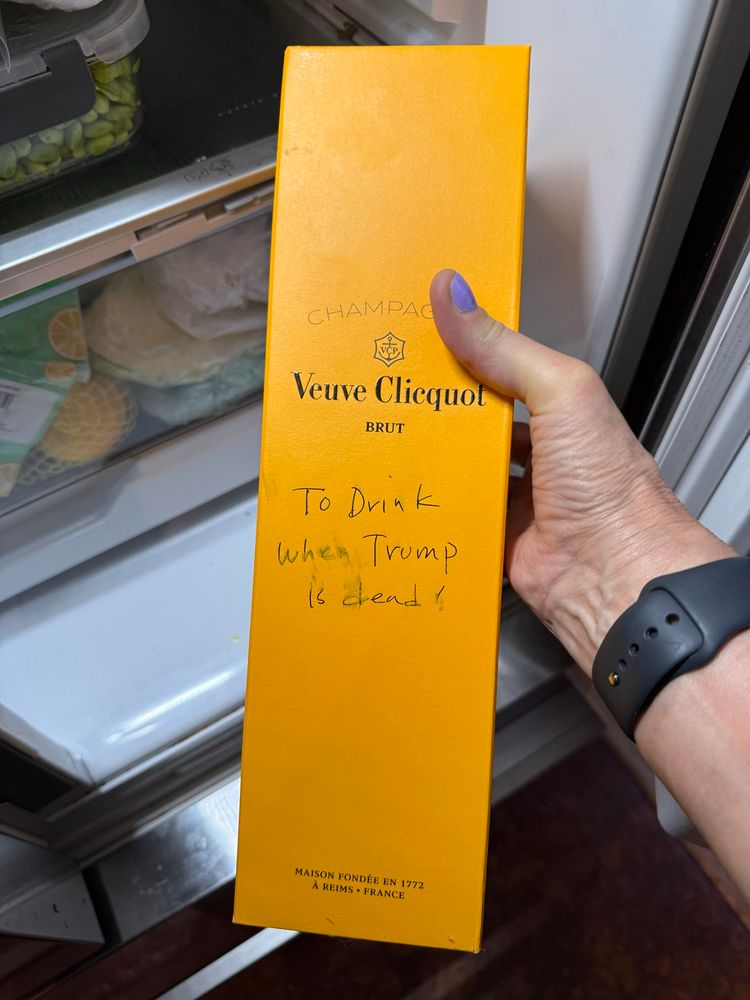 CHAMPAG
VCP
Veuve Clicquot
BRUT
To Drink
when Trump
Is dead!
MAISON FONDÉE EN 1772
À REIMS • FRANCE